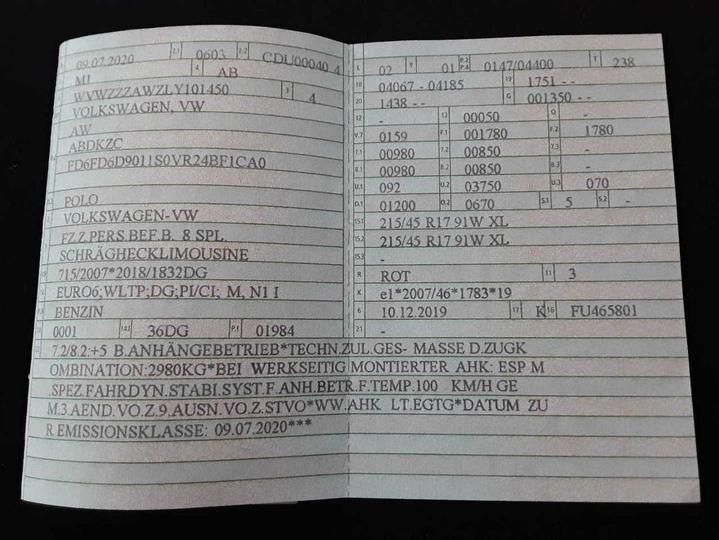 09.07.2020 2.1 0603 2.2 CDU00040 4
M1 4 AB
WVWZZZAWZLY101450 3 4
VOLKSWAGEN, VW
AW
ABDKZC
FD6FD6D9011S0VR24BF1CA0
POLO
VOLKSWAGEN-VW
FZ.Z.PERS.BEF.B. 8 SPL.
SCHRÄGHECKLIMOUSINE
715/2007*2018/1832DG
EURO6;WLTP;DG;PI/CI; M, N1 I
BENZIN
0001 14.1 36DG P.1 01984
L 02 9 01 P.2 P.4 0147/04400 T 238
18 04067 - 04185 19 1751 - -
20 1438 - - G 001350 - -
12 - 13 00050 Q -
V.7 0159 F.1 001780 F.2 1780
7.1 00980 7.2 00850 7.3 -
8.1 00980 8.2 00850 8.3 -
U.1 092 U.2 03750 U.3 070
O.1 01200 O.2 0670 S.1 5 S.2 -
15.1 215/45 R17 91W XL
15.2 215/45 R17 91W XL
15.3 -
R ROT 11 3
K e1*2007/46*1783*19
6 10.12.2019 17 K 16 FU465801
21 -
7.2/8.2:+5 B.ANHÄNGEBETRIEB*TECHN.ZUL.GES- MASSE D.ZUGK
OMBINATION:2980KG*BEI WERKSEITIG MONTIERTER AHK: ESP M
.SPEZ.FAHRDYN.STABI.SYST.F.ANH.BETR.F.TEMP.100 KM/H GE
M.3.AEND.VO.Z.9.AUSN.VO.Z.STVO*WW.AHK LT.EGTG*DATUM ZU
R EMISSIONSKLASSE: 09.07.2020***